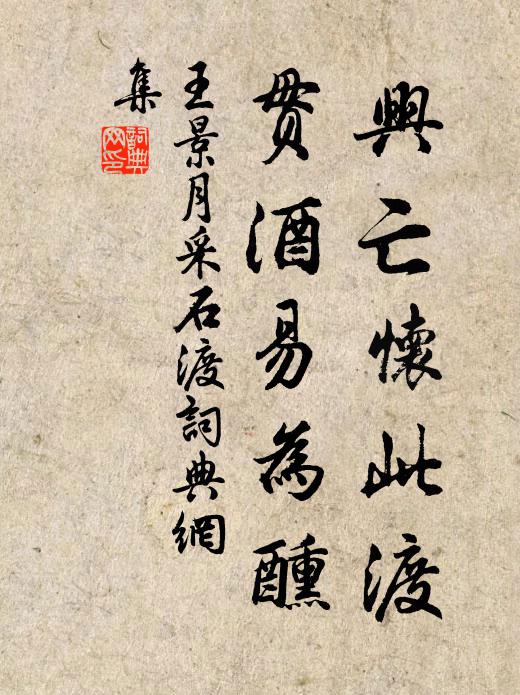 興亡懷此渡
貰酒易為醺
王景月采石渡詞典網
集
詞典网印